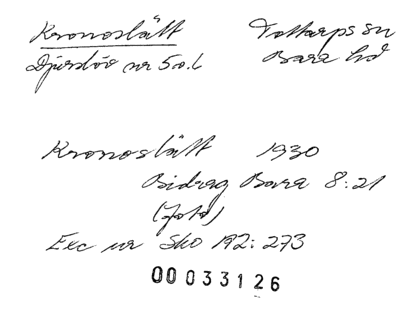 Kronoslätt Tottarps sn
Djurslöv nr 5 o. 6 Bara hd
Kronoslätt 1930
Bidrag Bara 8:21
(foto)
Exc nr Sko 192:273
00 033126